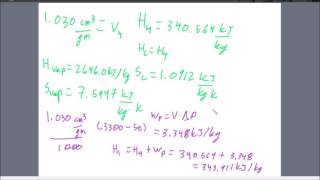 1.030 cm³/gm = V₄ H₄ = 340.564 kJ/kg
H₁ = H₄
Hvap = 2646.0 kJ/kg S_L = 1.0912 kJ/kg K
Svap = 7.5947 kJ/kg K
W_P = V ΔP
1.030 cm³/gm (3300-50) = 3.348 kJ/kg
1000
H₁ = H₄ + W_P = 340.564 + 3.348
= 343.911 kJ/kg